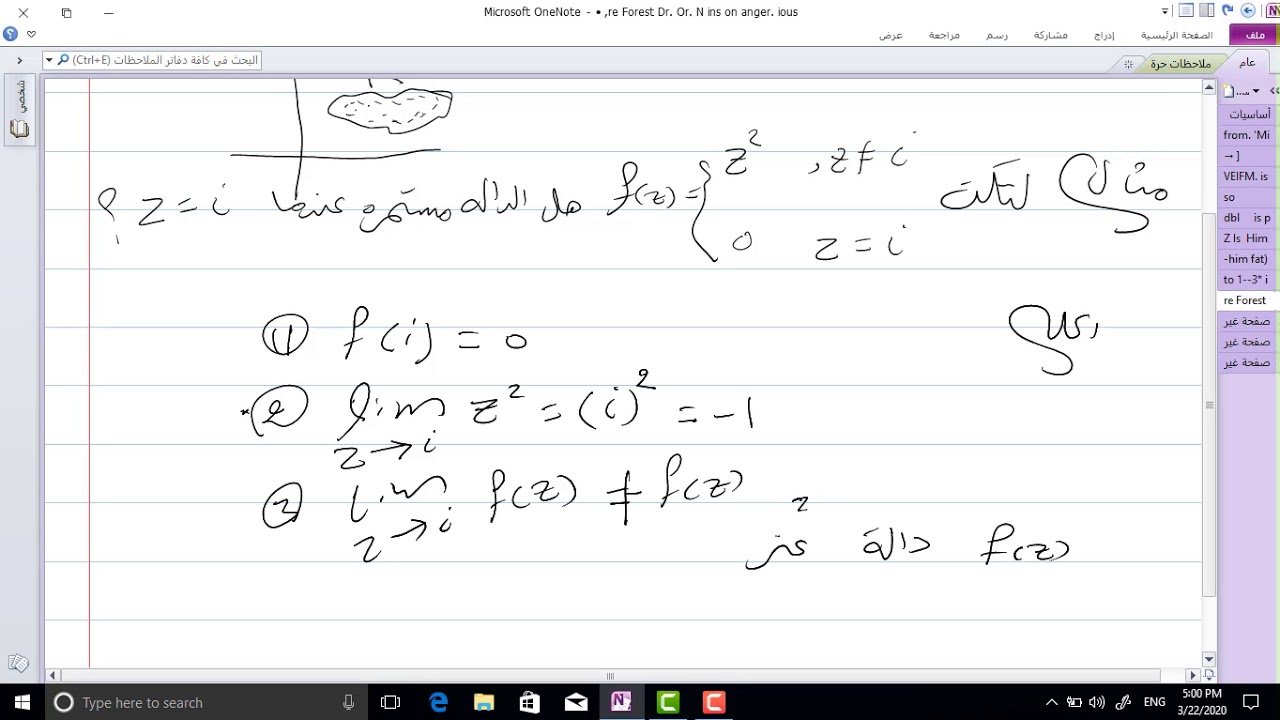 Microsoft OneNote - • ,re Forest Dr. Or. N ins on anger. ious
ملف الصفحة الرئيسية إدراج رسم مشاركة مراجعة عرض
عام ملاحظات حرة
البحث في كافة دفاتر الملاحظات (Ctrl+E)
شخصي
أساسيات
from. 'Mi
→ ]
VEIFM. is
so
dbl is p
Z Is Him
-him fat)
to 1--3* i
re Forest
صفحة غير
صفحة غير
صفحة غير
مثال لتكن f(z) = { z² , z ≠ i
0 z = i
هل الداله مستمرة عندما z = i ؟
① f(i) = 0
② lim z→i z² = (i)² = -1
③ lim z→i f(z) ≠ f(z)
f(z) دالة
Type here to search
ENG
5:00 PM
3/22/2020